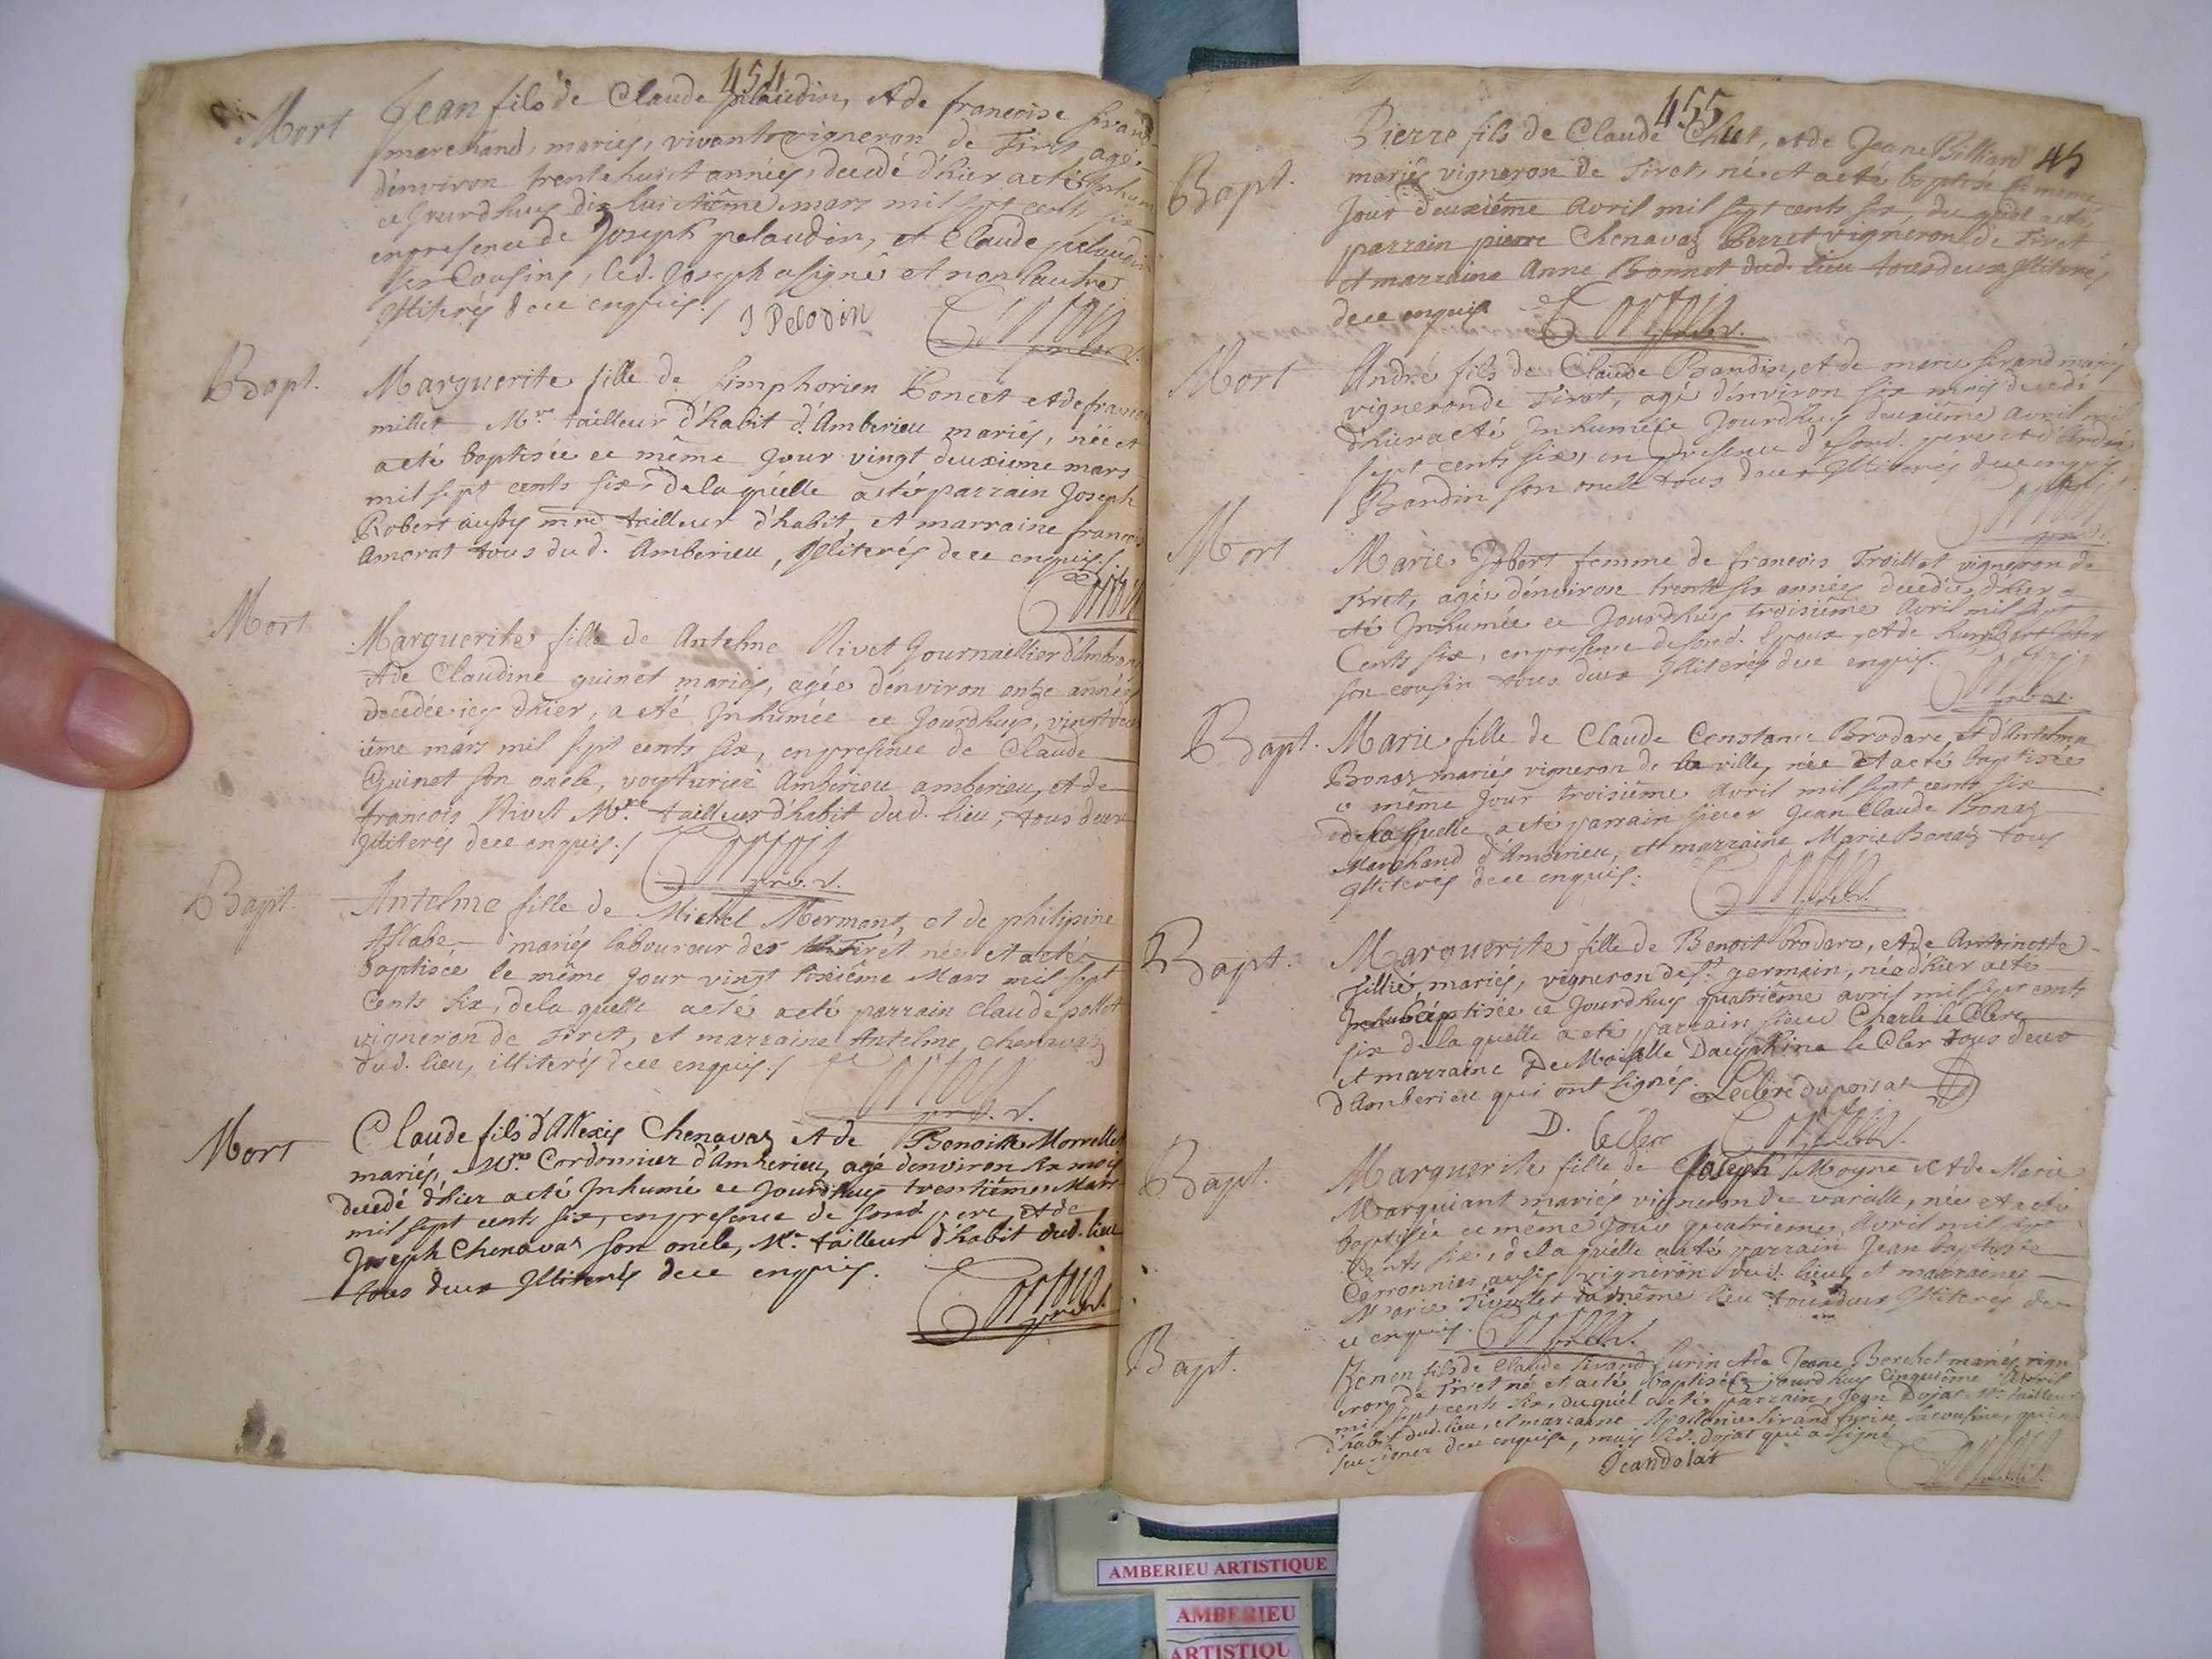 454
Mort
Jean fils de Claude pelaudin, et de francoise sirand
marchand, mariés, vivants vigneron de Tiret, agé
d'environ trente huict années, decedé d'hier a eté Inhumé
ce Jourdhuy dix huictiême mars mil sept cents six
en presence de Joseph pelaudin, et Claude pelaudin
ses Cousins, led. Joseph a signé et non lautre
Illiterés de ce enquis./
J Pelodin
Bapt.
Marguerite fille de simphorien Poncet et de francoise
millet Mre tailleur d'habit d'Amberieu mariés, née et
a eté baptisée ce même Jour vingt deuxieme mars
mil sept cents six, de la quelle a eté parrain Joseph
Robert aussy mre tailleur d'habit, et marraine francoise
Amerat tous dud. Amberieu, Illiterés de ce enquis./
Mort
Marguerite fille de Antelme Nivet Journaillier d'Ambronay
et de Claudine guinet mariés, agée d'environ onze années
decedée icy d'hier, a eté Inhumée ce Jourdhuy, vingt deux
iême mars mil sept cents six, en presence de Claude
Guinet son oncle, voyturier Amberieu amberieu, et de
francois Nivet Mre tailleur d'habit dud. lieu, tous deux
Illiterés de ce enquis./
Bapt.
Antelme fille de Michel Mermant, et de philipine
mariés laboureur de Tiret née et a eté
baptisée le même Jour vingt Mars mil sept
Cents six, de la quelle a eté a eté parrain Claude pollet
vigneron de Tiret, et marraine Antelme Chenavaz
dud. lieu, illiterés de ce enquis./
Mort
Claude fils d'Allexis Chenavaz et de Benoitte Morellet
mariés, Mre Cordonnier d'Amberieu, agé d'environ six mois
decedé d'hier a eté Inhumé ce Jourdhuy trentiême Mars
mil sept cents six, en presence de sond pere, et de
Joseph Chenavaz son oncle, Mre tailleur d'habit dud. lieu
tous deux Illiterés de ce enquis.
455
45
Bapt.
Pierre fils de Claude Chut, et de Jeane Billiard
mariés vigneron de Tiret, né et a eté baptisé ce meme
Jour deuxiême Avril mil sept cents six, du quel a eté
parrain pierre Chenavaz Perret vigneron de Tiret
et marraine Anne Bonnet dud. lieu tous deux Illiterés
de ce enquis
Mort
André fils de Claude Bandin, et de marie sirand mariés
vigneron de Tiret, agé d'environ six mois decedé
d'hier a eté Inhumé ce Jourdhuy deuxiême Avril mil
sept cents six, en presence de sond. pere et d'André
Bandin son oncle tous deux Illiterés de ce enquis
Mort
Marie Jobert femme de francois Troillet vigneron de
Tiret, agée d'environ trente six années decedée d'hier a
eté Inhumée ce Jourdhuy troisiême Avril mil sept
Cents six, en presence de sond. Epoux, et de humbert
son cousin tous deux Illiterés de ce enquis.
Bapt.
Marie fille de Claude Constance Brodare, et d'Antelma
Bonaz mariés vigneron de la ville, née et a eté baptisée
ce même Jour troisiême Avril mil sept cents six
de la quelle a eté parrain sieur Jean Claude Bonaz
Marchand d'Amberieu, et marraine Marie Bonaz tous
Illiterés de ce enquis.
Bapt.
Marguerite fille de Benoit brodare, et de Antoinette
Tillié, mariés, vigneron de St germain, née d'hier a eté
baptisée ce Jourdhuy quatriême avril mil sept cents
six de la quelle a eté parrain sieur Charle le Clerc
et marraine DeMoiselle Dauphine le Cler tous deux
d'Amberieu qui ont signés.
Leclerc dupoisat
D. leclerc
Bapt.
Marguerite fille de Joseph Moyne et de Marie
Marguiant mariés vigneron de vareille, née et a eté
baptisée ce meme Jour quatrieme Avril mil sept
Cents six, de la quelle a eté parrain Jean baptiste
Carronnier aussy vigneron dud. lieu, et marraine
Marie Tivollet du même lieu tous deux Illiterés de
ce enquis.
Bapt.
Zenon fils de Claude sirand surin et de Jeane Berchet mariés vign
eron de Tiret né et a eté baptisé ce jourdhuy Cinquiême Avril
mil sept cents six, du quel a eté parrain, Jean Dojat Mre tailleur
d'habit dud. lieu, et marraine Apollonie sirand surin sa cousine, qui n'a
seu signer de ce enquise, mais led. dojat qui a signé
Jean dolat
AMBERIEU ARTISTIQUE
AMBERIEU
ARTISTIQU